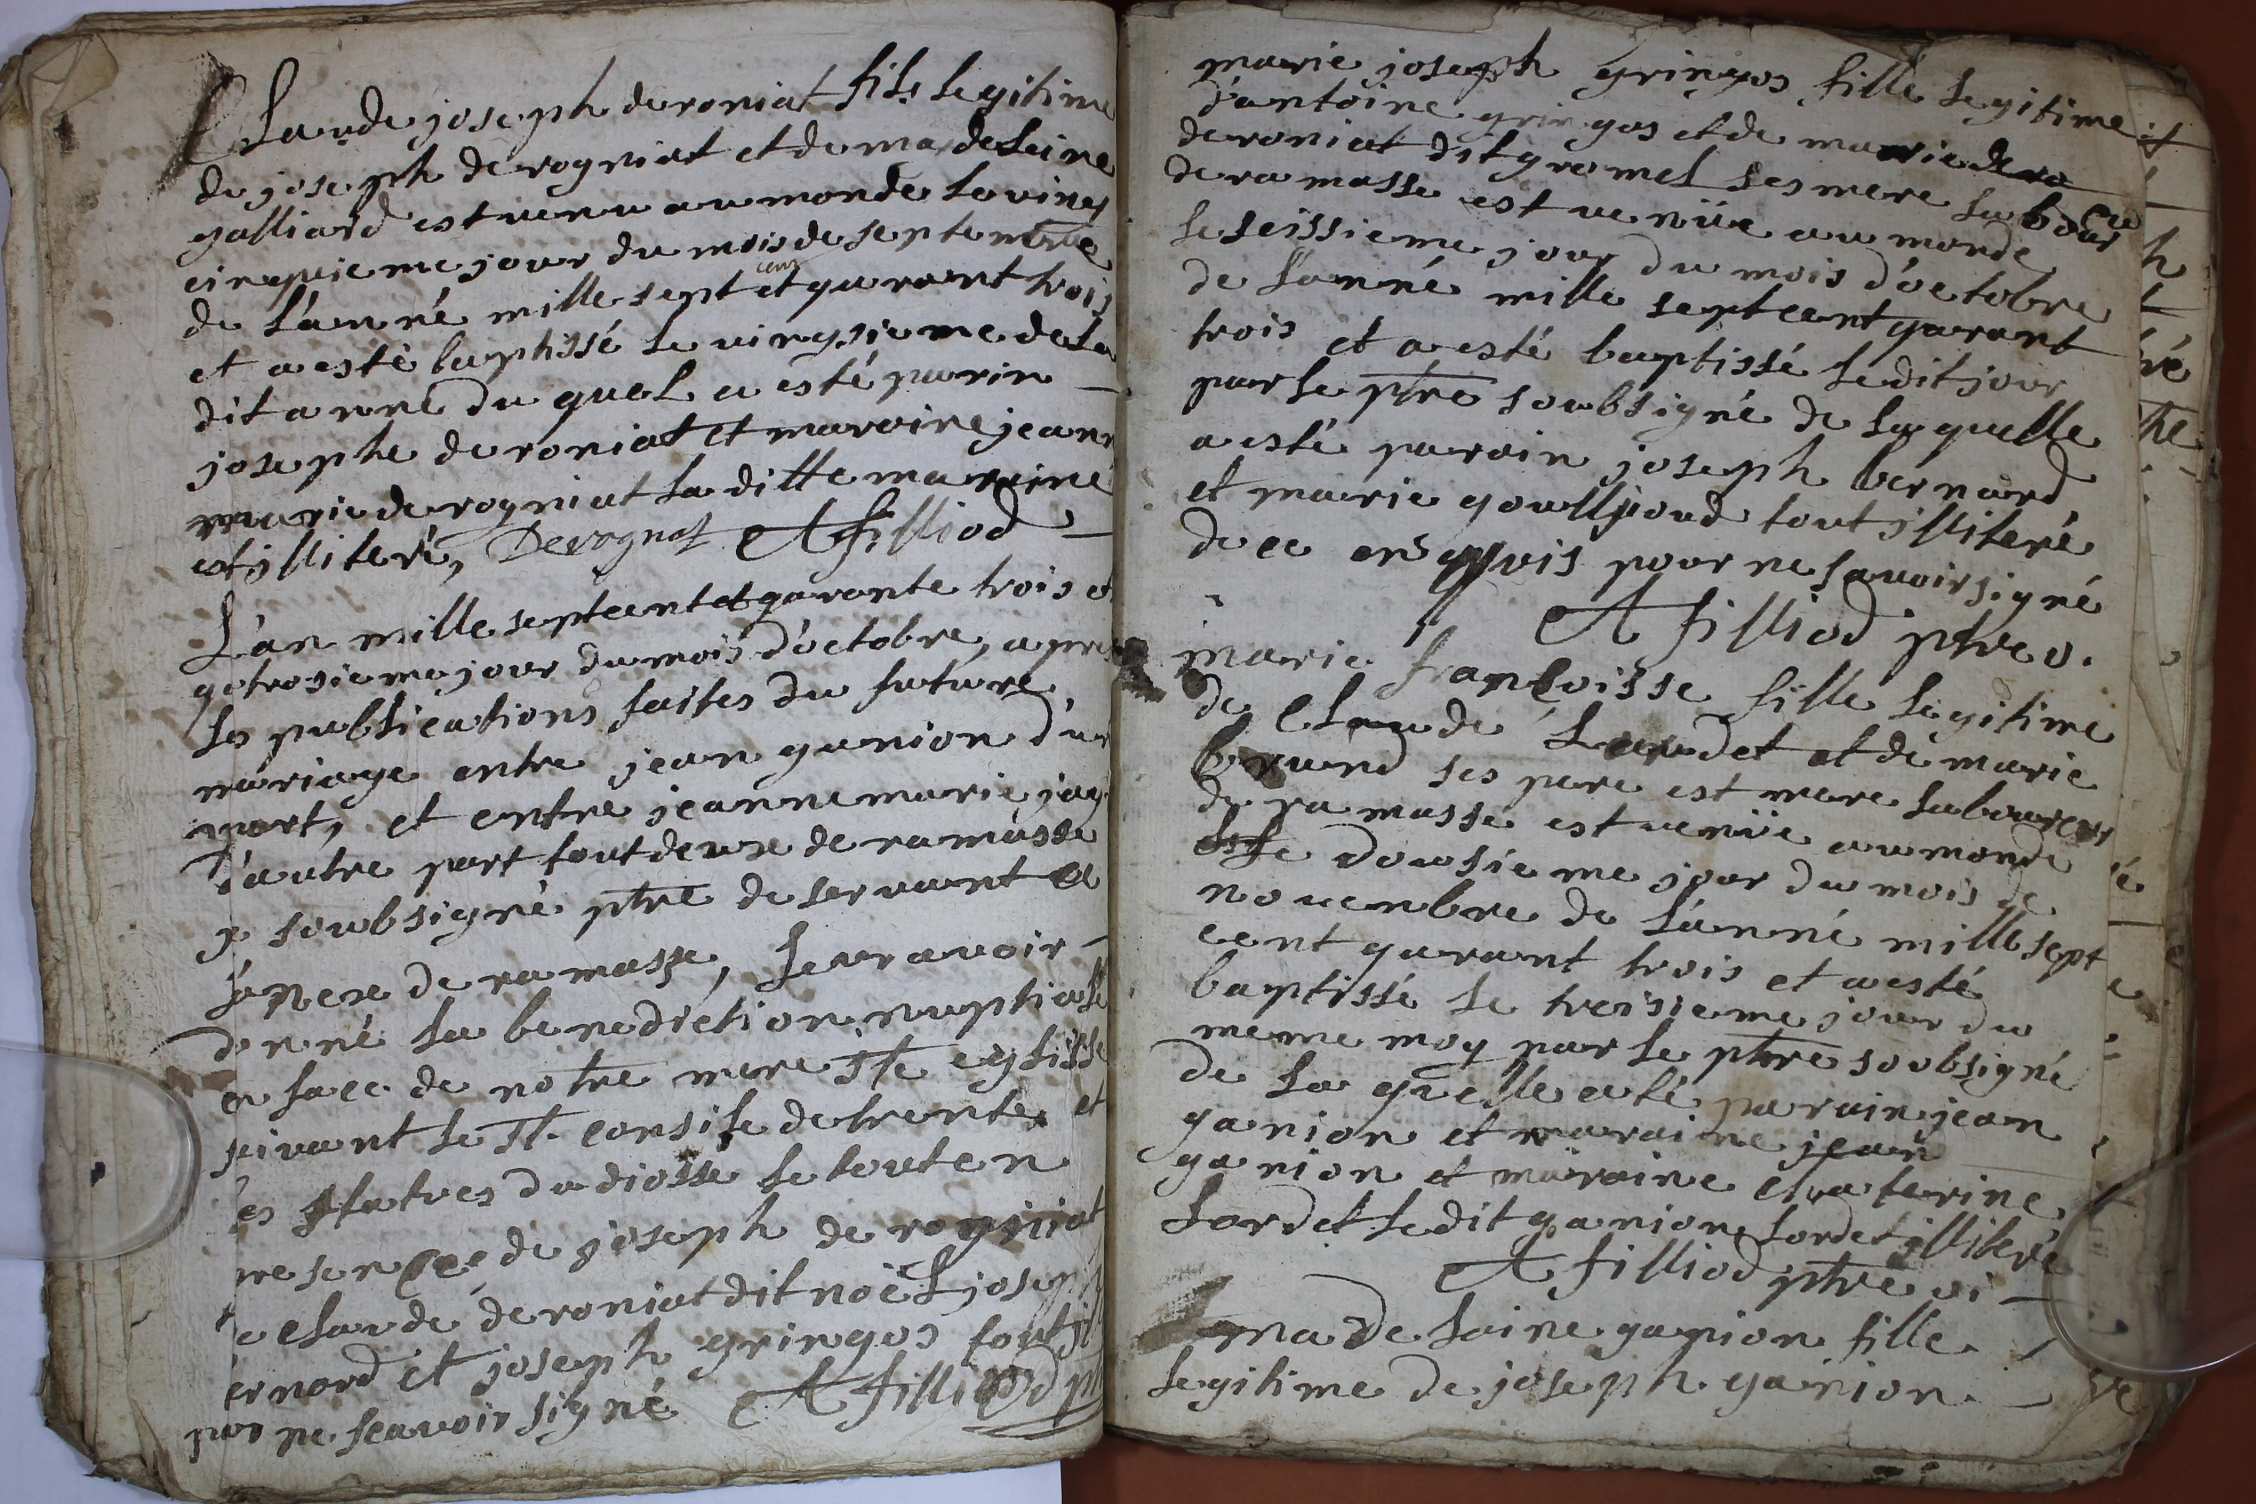 Claude joseph deroniat fils legitime
de joseph derogniat et de madeleine
galliard est venu au monde le ving
cinquieme jour du mois de septembre
de l'anné mille sept cens et quarant trois
et a esté baptissé le vingsieme de la
dit anné du quel a esté parin
josephe deroniat et maraine jeann
marie derogniat la ditte maraine
est jlliteré, Derognat A filliod
L'an mille septcent et quarante trois et
qatrosieme jour du mois d'octobre, apres
les publications faites du future
mariage entre jean ganion d'un
part, et entre jeanne marie jay
d'autre part tout deux de ramasse
je soubsigné ptre deservant
l'anexe de ramasse, leur avoir
donné la benediction nuptiale
en face de notre mere Ste eglisse
suivant le St. consile de trente et
es statues du diossé le tout en
presence de joseph de rogniat
e claude deroniat dit noël joseph
ernard et joseph gringos tout jll
pour ne scavoir signé A filliod pt
marie joseph gringos fille legitime
d'antoine gringos et de marie dero
deroniat dit gromel ses mere labour eur
de ramasse est venüe au monde
le seissieme jour du mois d'octobre
de l'anné mille septcent quarant
trois et a esté baptissé le dit jour
par le ptre soubsigné de laquelle
a esté parain joseph bernard
et marie goullioud tout jlliteré
de ce enquis pour ne savoir signé
A filliod ptre v.
marie francoisse fille legitime
de Claude Laudet et de marie
brund ses pere est mere laboureur
de ramasse est venüe au monde
le dousieme jour du mois de
novembre de l'anné mille sept
cent quarant trois et a esté
baptissé le treisieme jour du
meme moy par le ptre soubsigné
de la quelle a té parain jean
ganion et maraine jean
ganion et maraine Claterine
Lordet le dit ganion Lordet jlliteré
A filliod ptre vi
madelaine ganion fille
legitime de joseph ganion